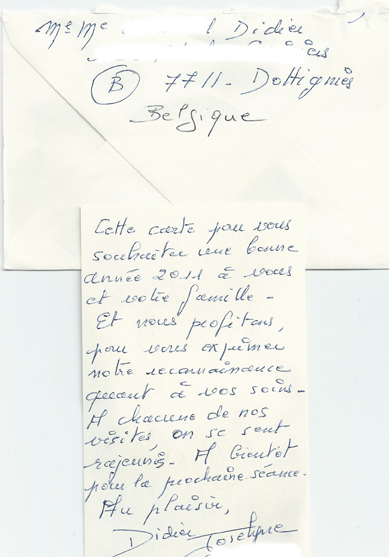 Mr Me Didier
(B) 7711 - Dottignies
Belgique
Cette carte pour vous
souhaiter une bonne
année 2011 à vous
et votre famille -
Et nous profitons,
pour vous exprimer
notre reconnaissance
quant à vos soins -
A chacune de nos
visites, on se sent
rajeunis - A bientôt
pour la prochaine séance.
Au plaisir,
Didier